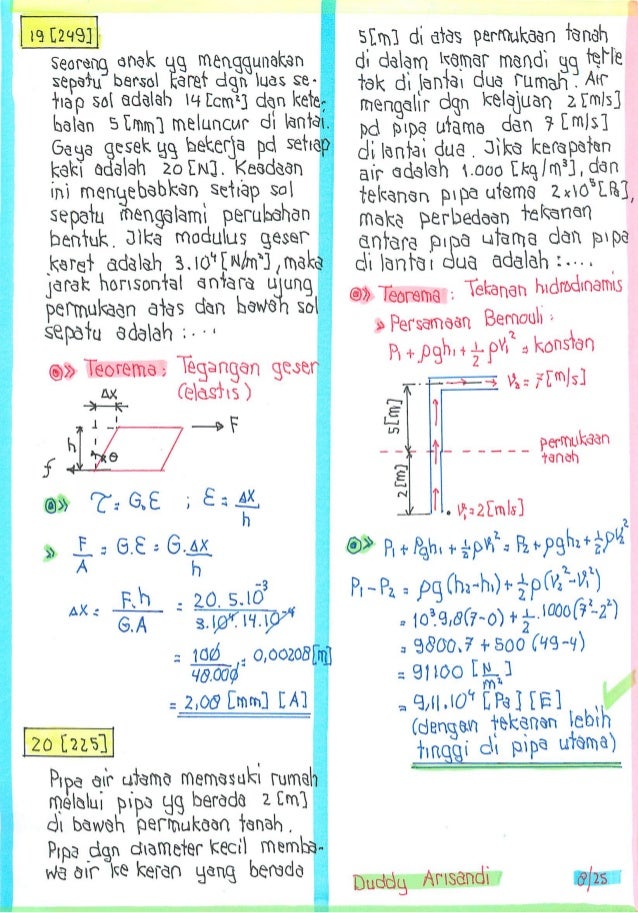 19 [249]
Seorang anak yg menggunakan
sepatu bersol karet dgn luas se-
tiap sol adalah 14 [cm²] dgn kete-
balan 5 [mm] meluncur di lantai.
Gaya gesek yg bekerja pd setiap
kaki adalah 20 [N]. Keadaan
ini menyebabkan setiap sol
sepatu mengalami perubahan
bentuk. Jika modulus geser
karet adalah 3.10⁴ [N/m²], maka
jarak horisontal antara ujung
permukaan atas dan bawah sol
sepatu adalah : ...
@» Teorema : Tegangan geser
(elastis)
Δx
F
h
θ
f
@» τ = G.ε ; ε = Δx/h
» F/A = G.ε = G.Δx/h
Δx = F.h/G.A = 20. 5.10⁻³/3.10⁴.14.10⁻⁴
= 100/48.000 = 0,00208 [m]
= 2,08 [mm] [A]
20 [225]
Pipa air utama memasuki rumah
melalui pipa yg berada 2 [m]
di bawah permukaan tanah.
Pipa dgn diameter kecil memba-
wa air ke keran yang berada
5 [m] di atas permukaan tanah
di dalam kamar mandi yg terle
tak di lantai dua rumah. Air
mengalir dgn kelajuan 2 [m/s]
pd pipa utama dan 7 [m/s]
di lantai dua. Jika kerapatan
air adalah 1.000 [kg/m³], dan
tekanan pipa utama 2x10⁵ [Pa],
maka perbedaan tekanan
antara pipa utama dan pipa
di lantai dua adalah : ....
@» Teorema : Tekanan hidrodinamis
» Persamaan Bernouli :
P₁ + ρgh₁ + ½ ρv₁² = konstan
V₂ = 7 [m/s]
5 [m]
permukaan
tanah
2 [m]
V₁ = 2 [m/s]
@» P₁ + ρgh₁ + ½ρV₁² = P₂ + ρgh₂ + ½ρV₂²
P₁ - P₂ = ρg (h₂-h₁) + ½ρ(V₂²-V₁²)
= 10³.9,8(7-0) + ½.1000(7²-2²)
= 9800.7 + 500 (49-4)
= 91100 [N/m²]
= 9,11.10⁴ [Pa] [E]
(dengan tekanan lebih
tinggi di pipa utama)
Duddy Arisandi
8/25